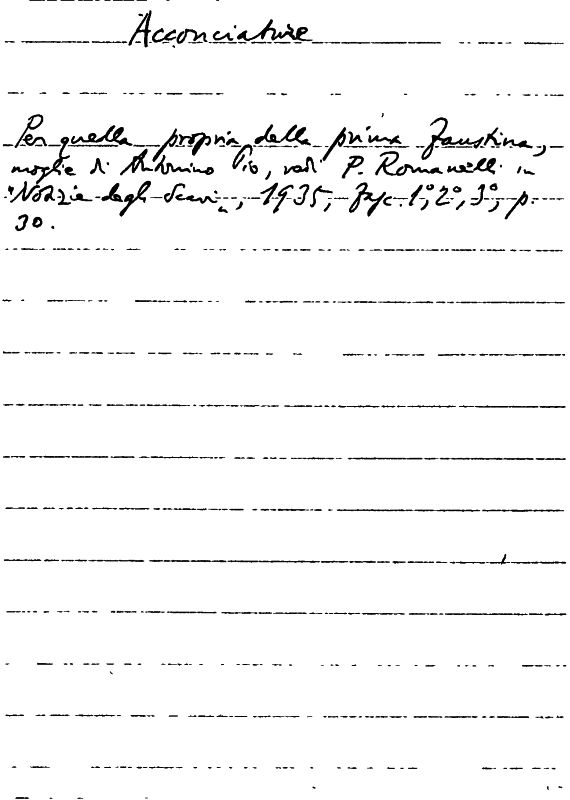 Acconciature
Per quella propria della prima Faustina,
moglie di Antonino Pio, vedi P. Romanelli in
"Notizie degli Scavi", 1935, fasc. 1°, 2°, 3°, p.
30.